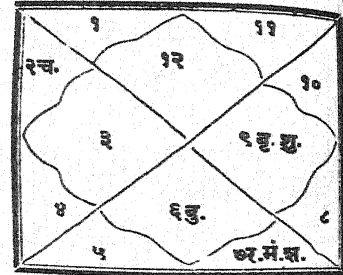 १ ११
२चं. १२ १०
३ ९बृ.शु.
४ ६बु. ८
५ ७र.मं.श.